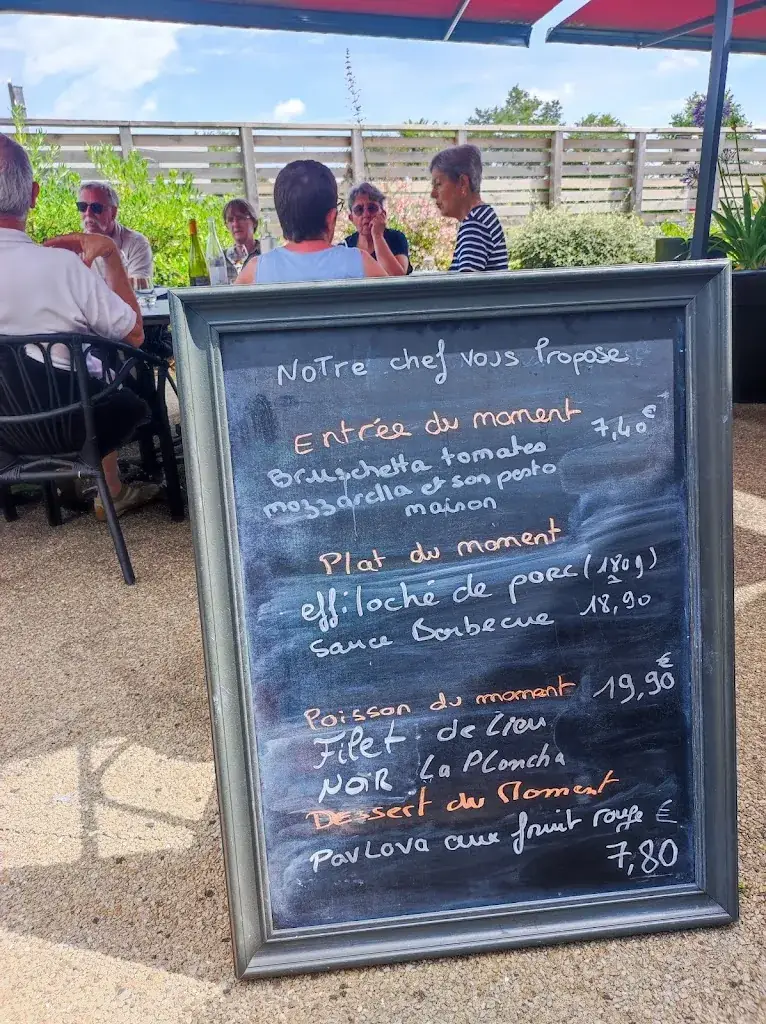 Notre chef vous Propose
Entrée du moment
7,40€
Bruschetta tomates
mozzarella et son pesto
maison
Plat du moment
effiloché de porc (180g)
sauce Barbecue 18,90
Poisson du moment 19,90€
Filet de Lieu
NOIR La Plancha
Dessert du Moment
Pavlova aux fruit rouge €
7,80